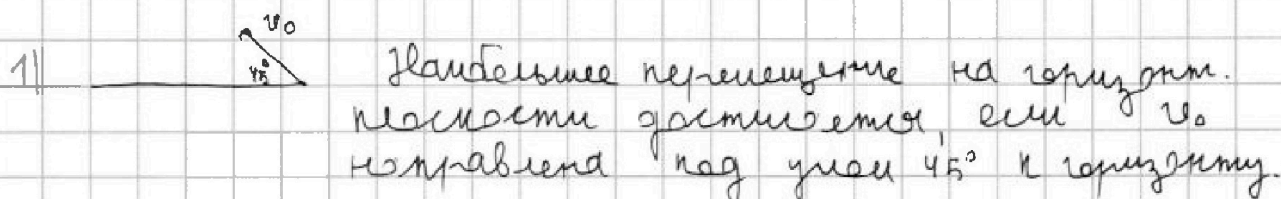 1)
v₀
45°
Наибольшее перемещение на горизонт.
плоскости достигается, если v₀
направлена под углом 45° к горизонту.